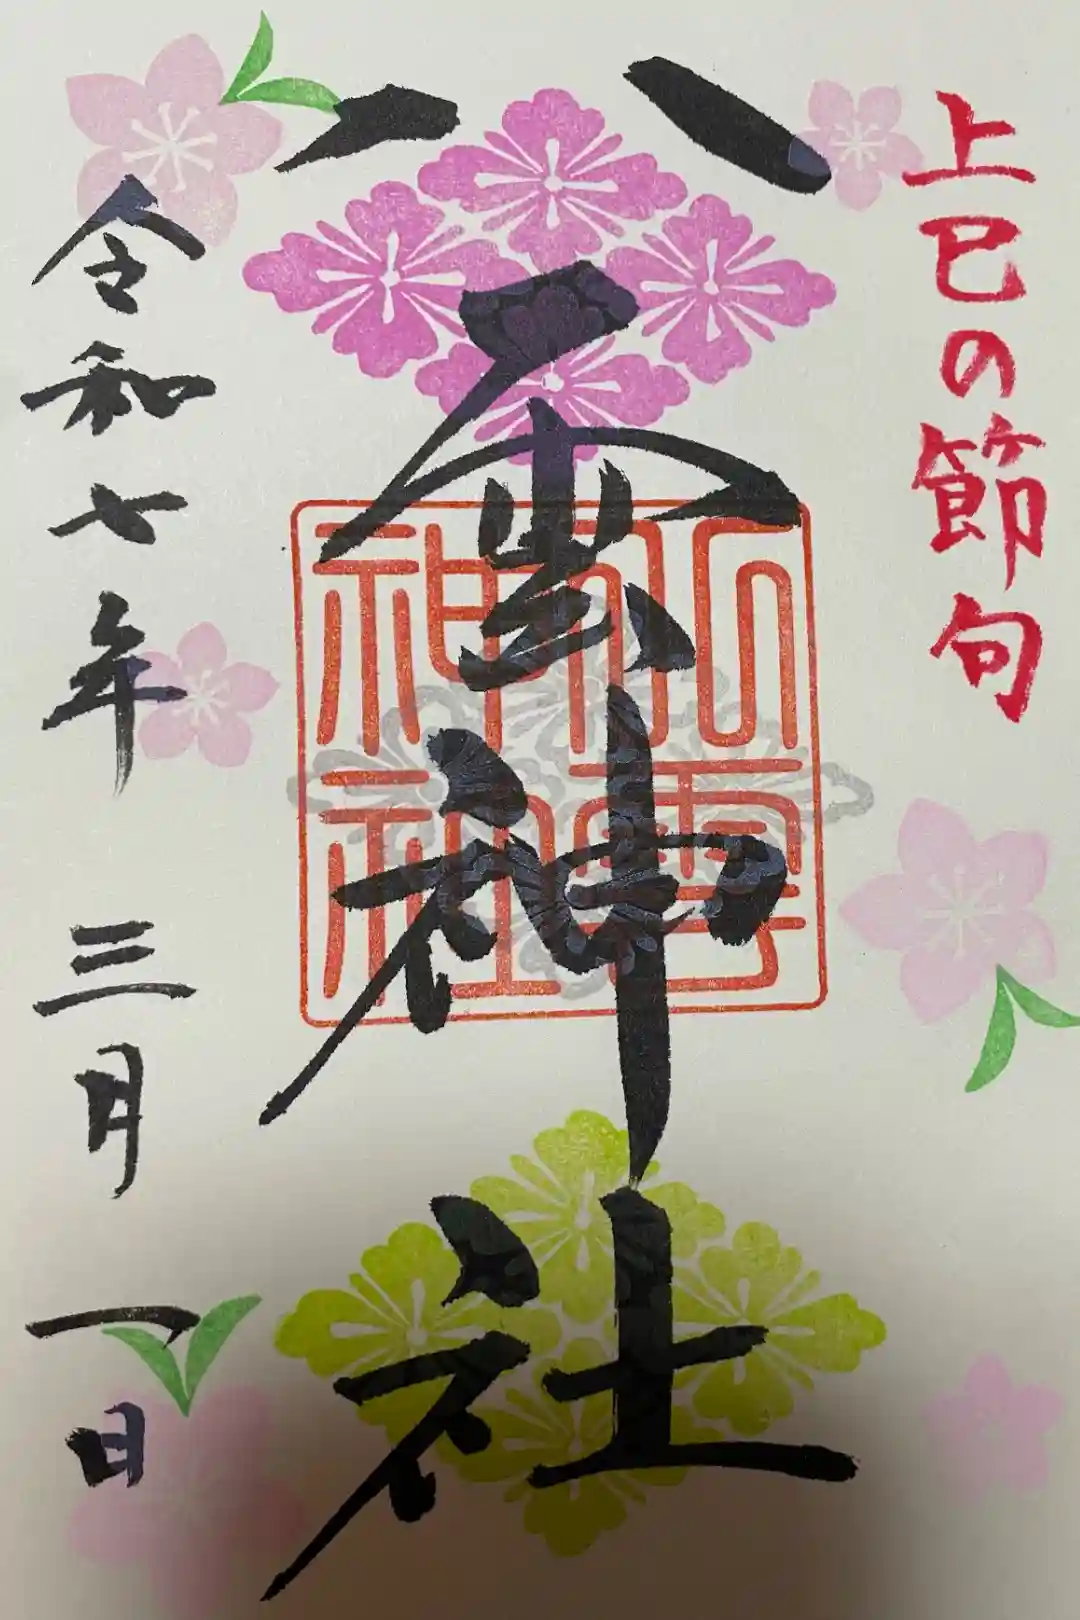 上巳の節句
八雲神社
八雲神社
令和七年 三月一日